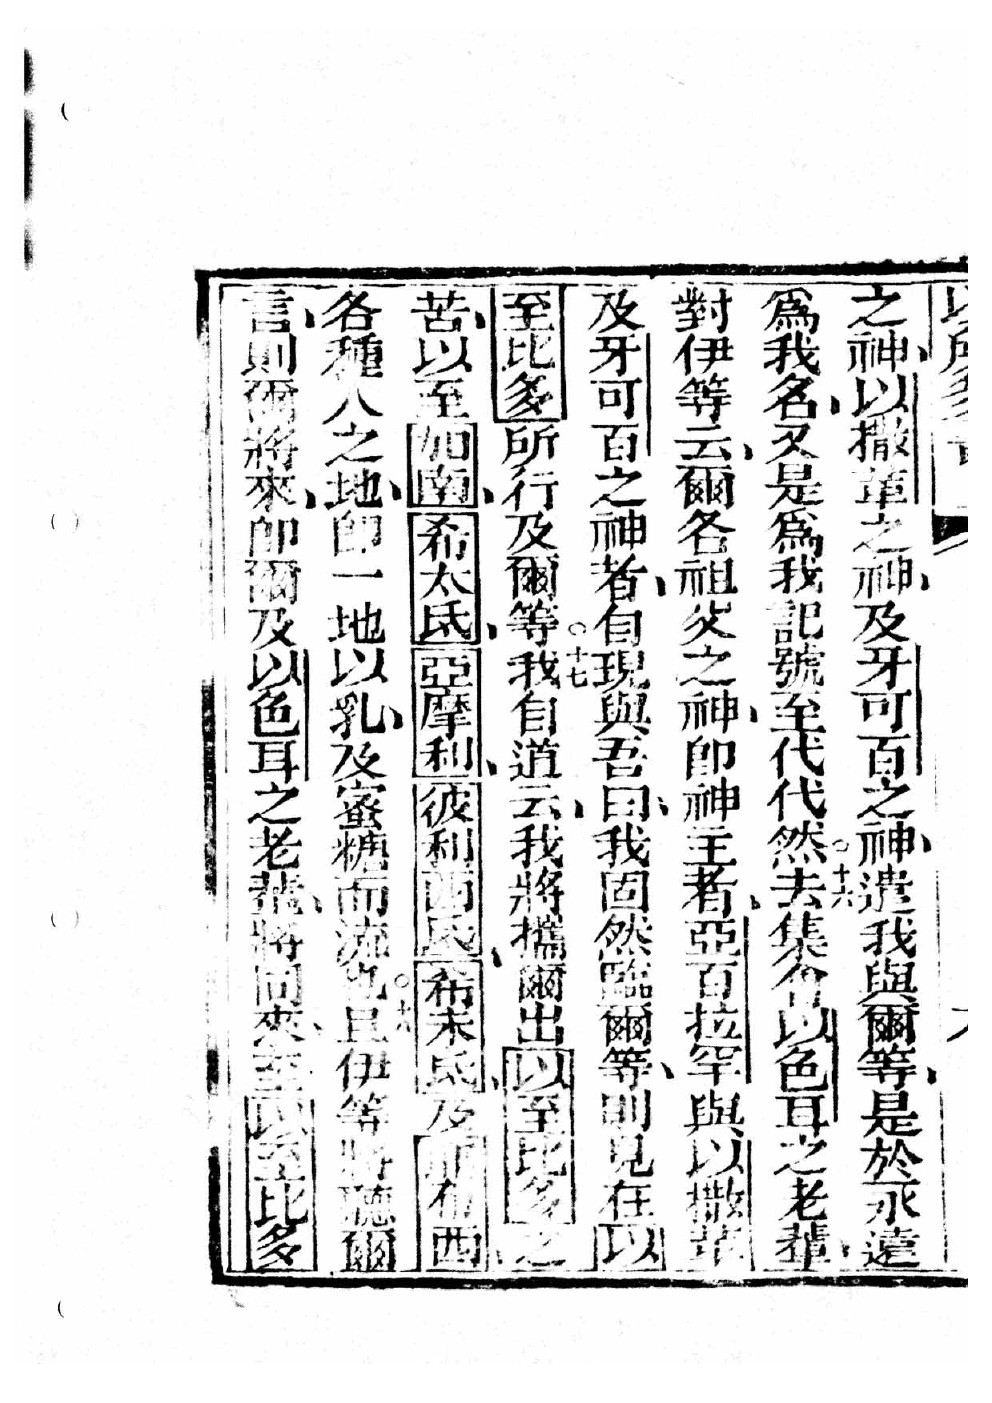 之神、以撒革之神、及牙可百之神、遣我與爾等、是於永遠
為我名、又是為我記號至代代然○十六去集會以色耳之老輩、
對伊等云、爾各祖父之神、即神主者、亞百拉罕與以撒革
及牙可百之神者、自現與吾曰、我固然臨爾等、則見在以
至比多所行及爾等○十七我自道云、我將攜爾出以至比多之
苦、以至加南、希太氐、亞摩利、彼利西氐、希未氐、及耶布西
各種人之地、即一地以乳、及蜜糖而流也○十八且伊等將聽爾
言、則爾將來、即爾及以色耳之老輩、將同來、至以至比多